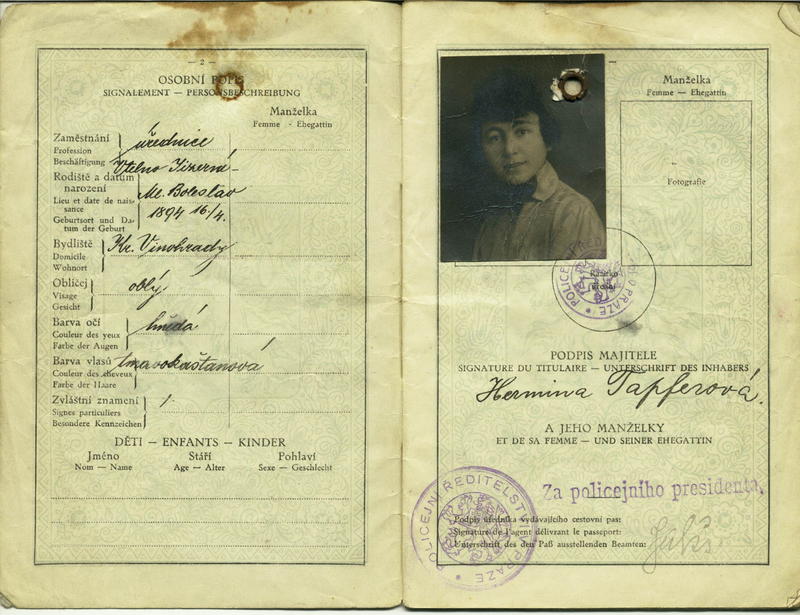 — 2 —
OSOBNÍ POPIS
SIGNALEMENT — PERSONSBESCHREIBUNG
Manželka
Femme - Ehegattin
Zaměstnání
Profession
Beschäftigung
úřednice
Rodiště a datum
narození
Lieu et date de nais-
sance
Geburtsort und Da-
tum der Geburt
Vtelno Jizerní -
Ml. Boleslav
1894 16/4.
Bydliště
Domicile
Wohnort
Kr. Vinohrady
Obličej
Visage
Gesicht
oblý.
Barva očí
Couleur des yeux
Farbe der Augen
hnědá
Barva vlasů
Couleur des cheveux
Farbe der Haare
tmavokaštanová
Zvláštní znamení
Signes particuliers
Besondere Kennzeichen
DĚTI — ENFANTS — KINDER
Jméno Stáří Pohlaví
Nom — Name Age — Alter Sexe — Geschlecht
Manželka
Femme — Ehegattin
Fotografie
Razítko
úřední
POLICEJNÍ ŘEDITELSTVÍ PRAZE
PODPIS MAJITELE
SIGNATURE DU TITULAIRE — UNTERSCHRIFT DES INHABERS
Hermina Tapferová.
A JEHO MANŽELKY
ET DE SA FEMME — UND SEINER EHEGATTIN
Za policejního presidenta.
Podpis úředníka vydávajícího cestovní pas:
Signature de l'agent délivrant le passeport:
Unterschrift des den Paß ausstellenden Beamten:
POLICEJNÍ ŘEDITELSTVÍ PRAZE